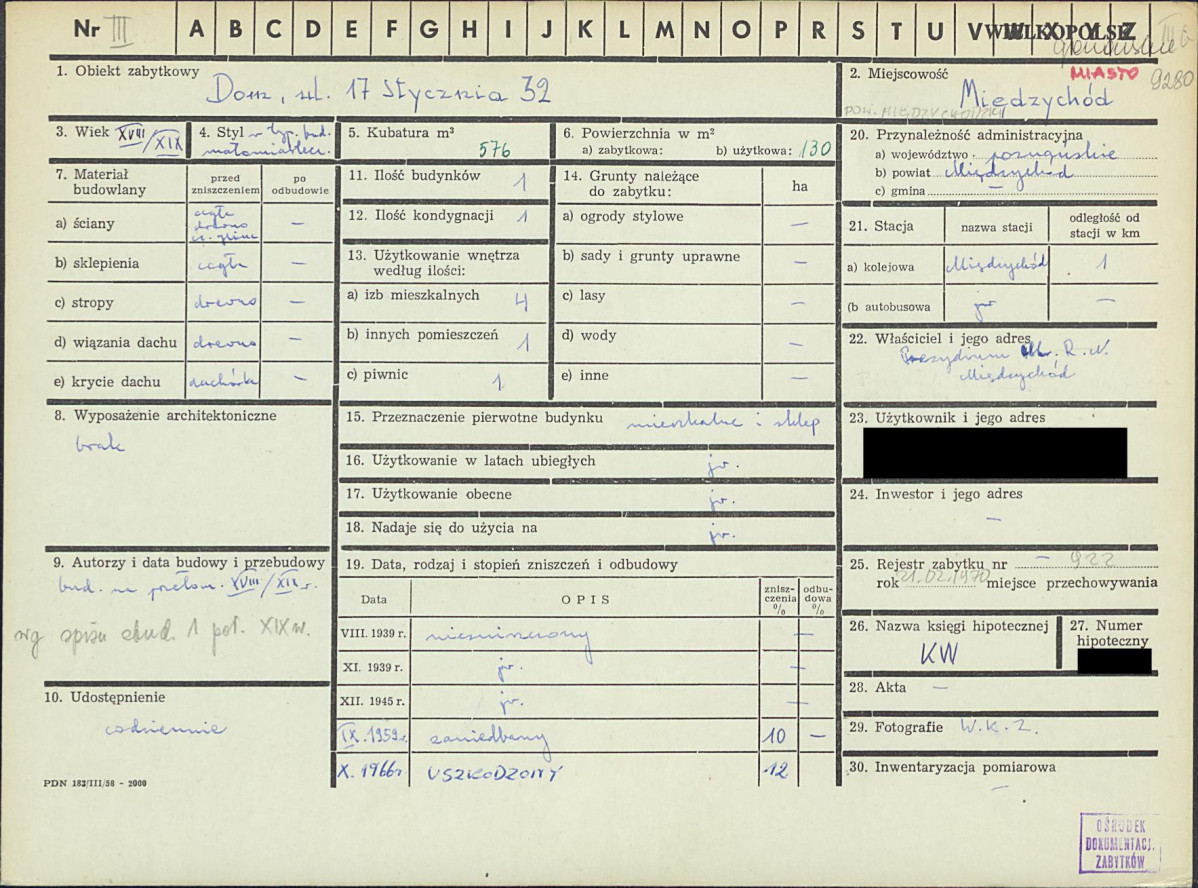 Nr III A B C D E F G H I J K L M N O P R S T U V W X Y Z
WIELKOPOLSKIE
MIASTO 9280
1. Obiekt zabytkowy
Dom, ul. 17 Stycznia 32
2. Miejscowość
POW. MIĘDZYCHODZKI
Międzychód
3. Wiek XVIII/XIX
4. Styl w typ. bud. małomiasteczk.
5. Kubatura m³
576
6. Powierzchnia w m²
a) zabytkowa: b) użytkowa: 130
7. Materiał budowlany
przed zniszczeniem
po odbudowie
a) ściany cegła drewno —
b) sklepienia cegła —
c) stropy drewno —
d) wiązania dachu drewno —
e) krycie dachu dachówka —
8. Wyposażenie architektoniczne
brak
9. Autorzy i data budowy i przebudowy
bud. na przełom. XVIII/XIX r.
wg spisu zbud. 1 poł. XIX w.
10. Udostępnienie
codziennie
PDN 183/III/58 - 2000
11. Ilość budynków 1
12. Ilość kondygnacji 1
13. Użytkowanie wnętrza według ilości:
a) izb mieszkalnych 4
b) innych pomieszczeń 1
c) piwnic 1
14. Grunty należące do zabytku: ha
a) ogrody stylowe —
b) sady i grunty uprawne —
c) lasy —
d) wody —
e) inne —
15. Przeznaczenie pierwotne budynku mieszkalne i sklep
16. Użytkowanie w latach ubiegłych jw.
17. Użytkowanie obecne jw.
18. Nadaje się do użycia na jw.
19. Data, rodzaj i stopień zniszczeń i odbudowy
Data OPIS zniszczenia % odbudowa %
VIII. 1939 r. niezniszczony —
XI. 1939 r. jw. —
XII. 1945 r. jw. —
IX. 1959 r. zaniedbany 10 —
X. 1966 r. USZKODZONY 12
20. Przynależność administracyjna
a) województwo poznańskie
b) powiat Międzychód
c) gmina —
21. Stacja nazwa stacji odległość od stacji w km
a) kolejowa Międzychód 1
(b autobusowa jw —
22. Właściciel i jego adres
Prezydium M. R. N.
Międzychód
23. Użytkownik i jego adres
24. Inwestor i jego adres
—
25. Rejestr zabytku nr — 922
rok 21.02.1970 miejsce przechowywania
26. Nazwa księgi hipotecznej
KW
27. Numer hipoteczny
28. Akta —
29. Fotografie W.K.Z.
30. Inwentaryzacja pomiarowa
—
OŚRODEK
DOKUMENTACJI
ZABYTKÓW